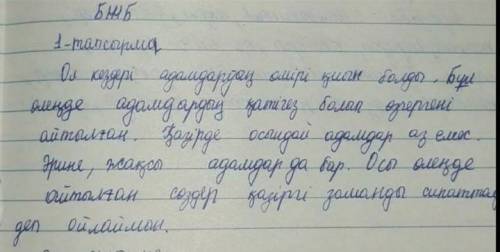 БЖБ
1-тапсырма
Ол кездері адамдардың өмірі қиын болды. Бұл
өлеңде адамдардың қатігез болып өзгергені
айтылған. Қазірде осындай адамдар аз емес.
Әрине, жақсы адамдар да бар. Осы өлеңде
айтылған сөздер қазіргі заманды сипаттай
деп ойлаймын.